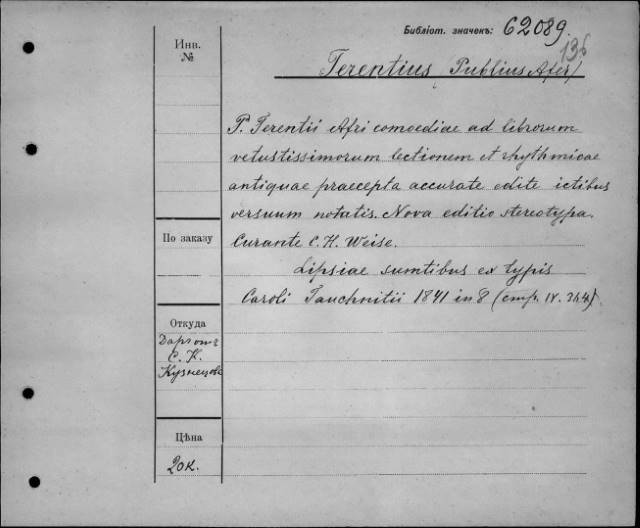 Библіот. значекъ: 62089.
136
Инв.
№
Terentius Publius Afer
P. Terentii Afri comoediae ad librorum
vetustissimorum lectionem et rhythmicae
antiquae praecepta accurate edite ictibus
versuum notatis. Nova editio stereotypa.
По заказу
Curante C. H. Weise.
Lipsiae sumtibus ex typis
Caroli Tauchnitii 1841 in 8 (стр. IV. 264)
Откуда
Даръ отъ
С. К.
Кузнецова
Цѣна
20к.